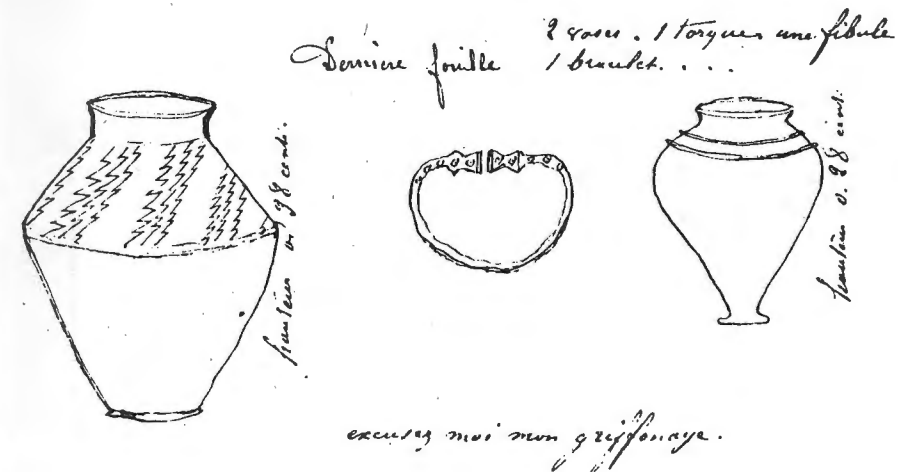 Dernière fouille
2 vases. 1 torques une fibule
1 bracelet. . . .
hauteur 0, 38 cent.
hauteur 0. 28 cent.
excusez moi mon griffonage.